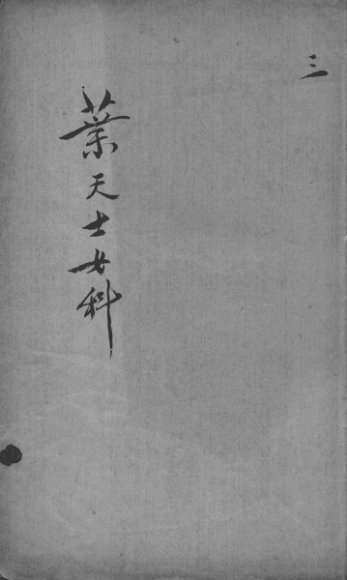 三
葉天士女科